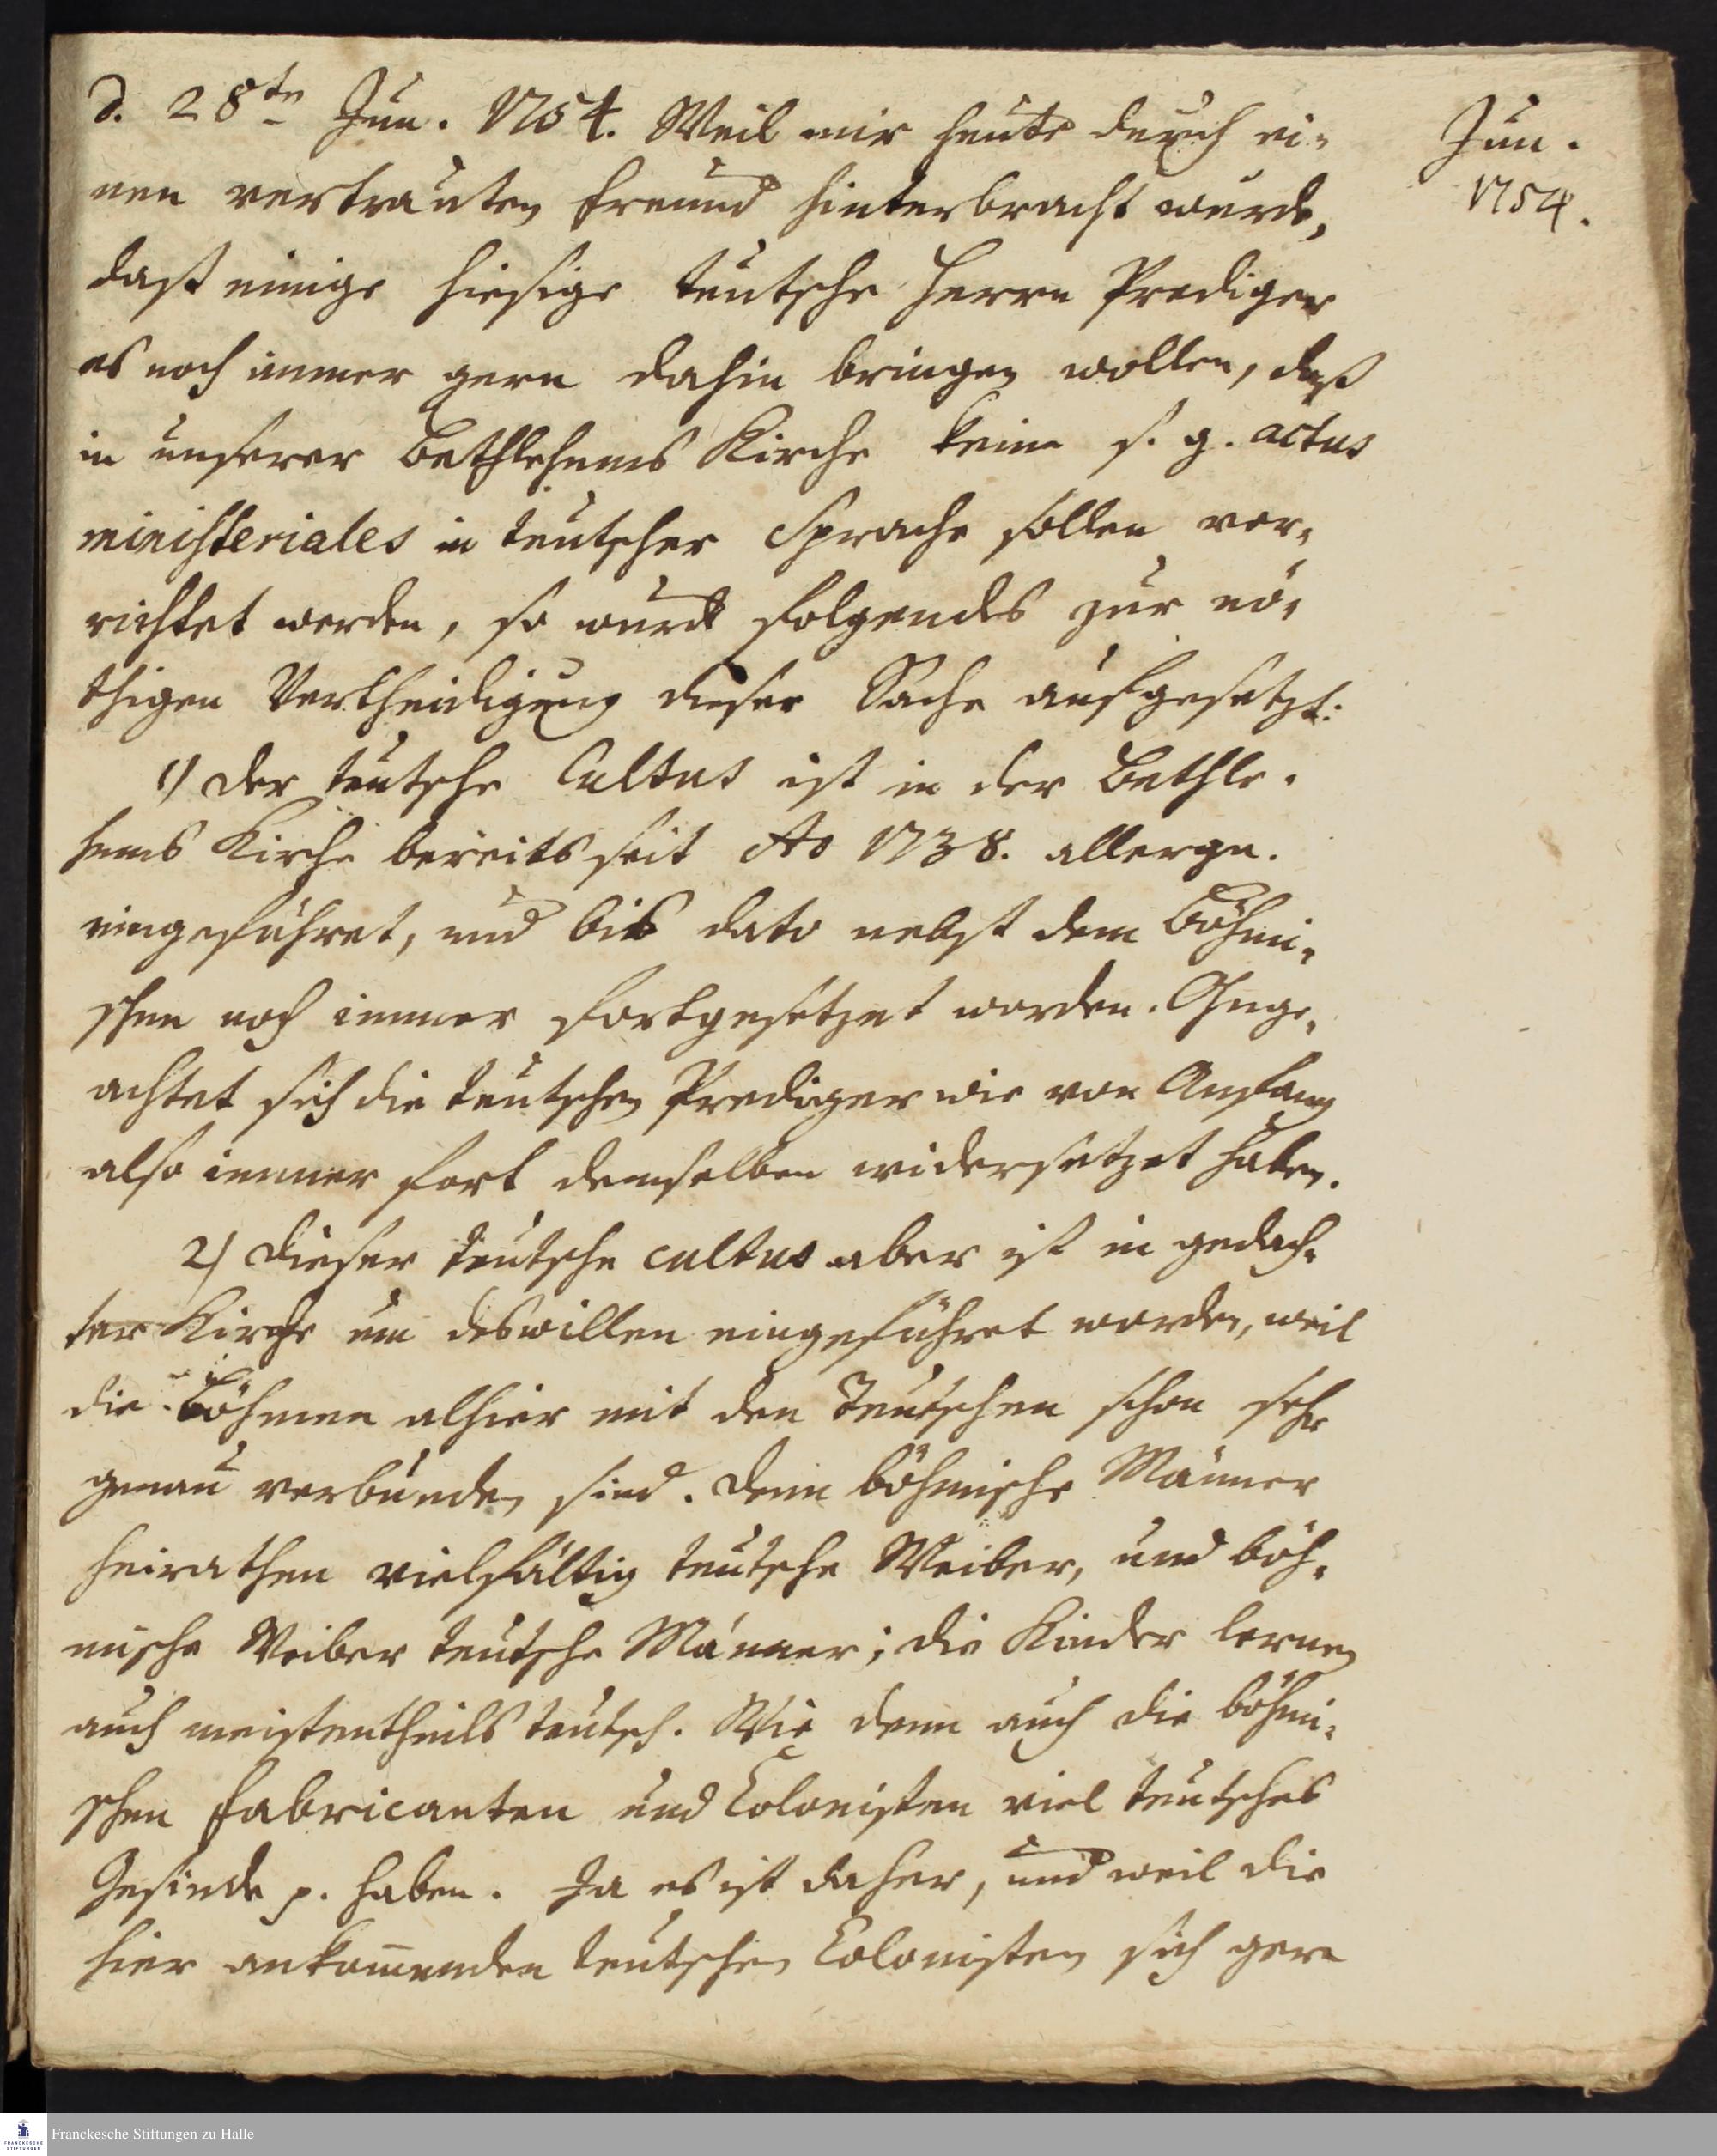 d. 28ten Jun. 1754. Weil mir heute durch ei-
nen vertrauten Freund hinterbracht wurde,
daß einige hiesige teutsche Herrn Prediger
es noch immer gern dahin bringen wollen, daß
in unserer Bethlehems Kirche keine s. g. actus
ministeriales in teutscher Sprache sollen ver-
richtet werden, so wurde folgendes zur nö-
thigen Vertheidigung dieser Sache aufgesetzt:
1) Der teutsche Cultus ist in der Bethle-
hems Kirche bereits seit Ao 1738. allergn.
eingeführet, und bis dato nebst dem Böhmi-
schen noch immer fortgesetzet worden. Ohnge-
achtet sich die teutschen Prediger wie von Anfang
also immer fort demselben widersetzet haben.
2) Dieser teutsche cultus aber ist in gedach-
ter Kirche um deswillen eingeführet worden, weil
die Böhmen alhier mit den Teutschen schon sehr
genau verbunden sind. Denn böhmische Männer
heirathen vielfältig teutsche Weiber, und böh-
mische Weiber teutsche Männer; die Kinder lernen
auch meistentheils teutsch. Wie denn auch die böhmi-
schen Fabricanten und Colonisten viel teutsches
Gesinde p. haben. Ja es ist daher, und weil die
hier ankom̅enden teutschen Colonisten sich gern
Jun.
1754.
FRANCKESCHE
STIFTUNGEN
Franckesche Stiftungen zu Halle